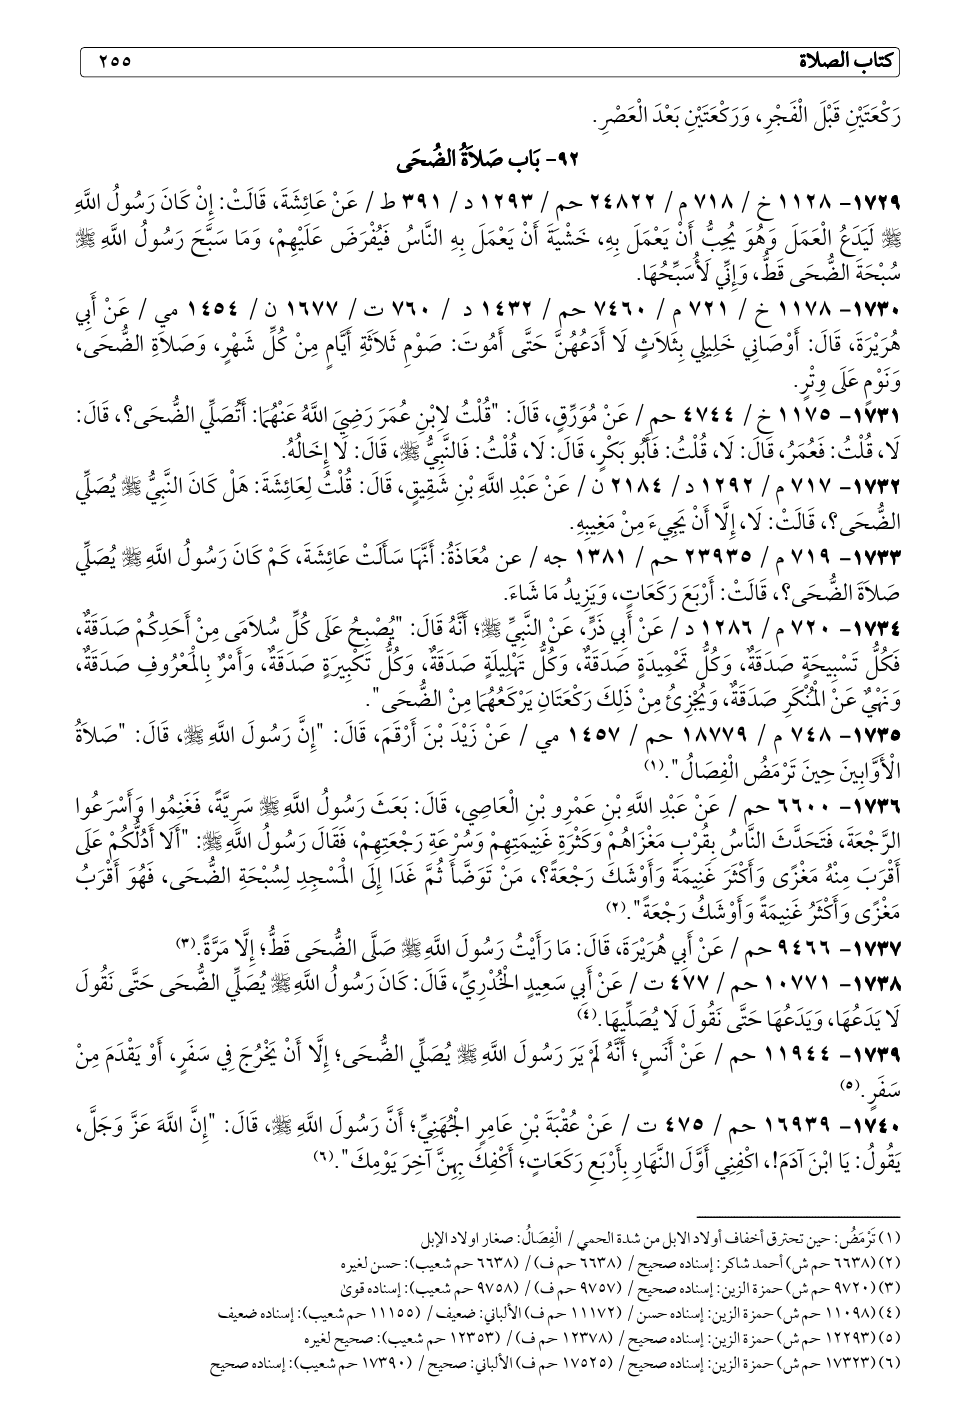 كتاب الصلاة ٢٥٥
رَكْعَتَيْنِ قَبْلَ الْفَجْرِ، وَرَكْعَتَيْنِ بَعْدَ الْعَصْرِ.
٩٢- بَاب صَلاَةُ الضُحَى
١٧٢٩- ١١٢٨ خ / ٧١٨ م / ٢٤٨٢٢ حم / ١٢٩٣ د / ٣٩١ ط / عَنْ عَائِشَةَ، قَالَتْ: إِنْ كَانَ رَسُولُ اللَّهِ
ﷺ لَيَدَعُ الْعَمَلَ وَهُوَ يُحِبُّ أَنْ يَعْمَلَ بِهِ، خَشْيَةَ أَنْ يَعْمَلَ بِهِ النَّاسُ فَيُفْرَضَ عَلَيْهِمْ، وَمَا سَبَّحَ رَسُولُ اللَّهِ ﷺ
سُبْحَةَ الضُّحَى قَطُّ، وَإِنِّي لَأُسَبِّحُهَا.
١٧٣٠- ١١٧٨ خ / ٧٢١ م / ٧٤٦٠ حم / ١٤٣٢ د / ٧٦٠ ت / ١٦٧٧ ن / ١٤٥٤ مي / عَنْ أَبِي
هُرَيْرَةَ، قَالَ: أَوْصَانِي خَلِيلِي بِثَلاَثٍ لَا أَدَعُهُنَّ حَتَّى أَمُوتَ: صَوْمِ ثَلاَثَةِ أَيَّامٍ مِنْ كُلِّ شَهْرٍ، وَصَلاَةِ الضُّحَى،
وَنَوْمٍ عَلَى وِتْرٍ.
١٧٣١- ١١٧٥ خ / ٤٧٤٤ حم / عَنْ مُوَرِّقٍ، قَالَ: "قُلْتُ لِابْنِ عُمَرَ رَضِيَ اللَّهُ عَنْهُمَا: أَتُصَلِّي الضُّحَى؟، قَالَ:
لَا، قُلْتُ: فَعُمَرُ، قَالَ: لَا، قُلْتُ: فَأَبُو بَكْرٍ، قَالَ: لَا، قُلْتُ: فَالنَّبِيُّ ﷺ، قَالَ: لَا إِخَالُهُ.
١٧٣٢- ٧١٧ م / ١٢٩٢ د / ٢١٨٤ ن / عَنْ عَبْدِ اللَّهِ بْنِ شَقِيقٍ، قَالَ: قُلْتُ لِعَائِشَةَ: هَلْ كَانَ النَّبِيُّ ﷺ يُصَلِّي
الضُّحَى؟، قَالَتْ: لَا، إِلَّا أَنْ يَجِيءَ مِنْ مَغِيبِهِ.
١٧٣٣- ٧١٩ م / ٢٣٩٣٥ حم / ١٣٨١ جه / عن مُعَاذَةُ: أَنَّهَا سَأَلَتْ عَائِشَةَ، كَمْ كَانَ رَسُولُ اللَّهِ ﷺ يُصَلِّي
صَلاَةَ الضُّحَى؟، قَالَتْ: أَرْبَعَ رَكَعَاتٍ، وَيَزِيدُ مَا شَاءَ.
١٧٣٤- ٧٢٠ م / ١٢٨٦ د / عَنْ أَبِي ذَرٍّ، عَنْ النَّبِيِّ ﷺ؛ أَنَّهُ قَالَ: "يُصْبِحُ عَلَى كُلِّ سُلاَمَى مِنْ أَحَدِكُمْ صَدَقَةٌ،
فَكُلُّ تَسْبِيحَةٍ صَدَقَةٌ، وَكُلُّ تَحْمِيدَةٍ صَدَقَةٌ، وَكُلُّ تَهْلِيلَةٍ صَدَقَةٌ، وَكُلُّ تَكْبِيرَةٍ صَدَقَةٌ، وَأَمْرٌ بِالْمَعْرُوفِ صَدَقَةٌ،
وَنَهْيٌ عَنْ الْمُنْكَرِ صَدَقَةٌ، وَيُجْزِئُ مِنْ ذَلِكَ رَكْعَتَانِ يَرْكَعُهُمَا مِنْ الضُّحَى".
١٧٣٥- ٧٤٨ م / ١٨٧٧٩ حم / ١٤٥٧ مي / عَنْ زَيْدَ بْنَ أَرْقَمَ، قَالَ: "إِنَّ رَسُولَ اللَّهِ ﷺ، قَالَ: "صَلاَةُ
الْأَوَّابِينَ حِينَ تَرْمَضُ الْفِصَالُ".(١)
١٧٣٦- ٦٦٠٠ حم / عَنْ عَبْدِ اللَّهِ بْنِ عَمْرِو بْنِ الْعَاصِي، قَالَ: بَعَثَ رَسُولُ اللَّهِ ﷺ سَرِيَّةً، فَغَنِمُوا وَأَسْرَعُوا
الرَّجْعَةَ، فَتَحَدَّثَ النَّاسُ بِقُرْبِ مَغْزَاهُمْ وَكَثْرَةِ غَنِيمَتِهِمْ وَسُرْعَةِ رَجْعَتِهِمْ، فَقَالَ رَسُولُ اللَّهِ ﷺ: "أَلَا أَدُلُّكُمْ عَلَى
أَقْرَبَ مِنْهُ مَغْزًى وَأَكْثَرَ غَنِيمَةً وَأَوْشَكَ رَجْعَةً؟، مَنْ تَوَضَّأَ ثُمَّ غَدَا إِلَى الْمَسْجِدِ لِسُبْحَةِ الضُّحَى، فَهُوَ أَقْرَبُ
مَغْزًى وَأَكْثَرُ غَنِيمَةً وَأَوْشَكُ رَجْعَةً".(٢)
١٧٣٧- ٩٤٦٦ حم / عَنْ أَبِي هُرَيْرَةَ، قَالَ: مَا رَأَيْتُ رَسُولَ اللَّهِ ﷺ صَلَّى الضُّحَى قَطُّ؛ إِلَّا مَرَّةً.(٣)
١٧٣٨- ١٠٧٧١ حم / ٤٧٧ ت / عَنْ أَبِي سَعِيدٍ الْخُدْرِيِّ، قَالَ: كَانَ رَسُولُ اللَّهِ ﷺ يُصَلِّي الضُّحَى حَتَّى نَقُولَ
لَا يَدَعُهَا، وَيَدَعُهَا حَتَّى نَقُولَ لَا يُصَلِّيهَا.(٤)
١٧٣٩- ١١٩٤٤ حم / عَنْ أَنَسٍ؛ أَنَّهُ لَمْ يَرَ رَسُولَ اللَّهِ ﷺ يُصَلِّي الضُّحَى؛ إِلَّا أَنْ يَخْرُجَ فِي سَفَرٍ، أَوْ يَقْدَمَ مِنْ
سَفَرٍ.(٥)
١٧٤٠- ١٦٩٣٩ حم / ٤٧٥ ت / عَنْ عُقْبَةَ بْنِ عَامِرٍ الْجُهَنِيِّ؛ أَنَّ رَسُولَ اللَّهِ ﷺ، قَالَ: "إِنَّ اللَّهَ عَزَّ وَجَلَّ،
يَقُولُ: يَا ابْنَ آدَمَ!، اكْفِنِي أَوَّلَ النَّهَارِ بِأَرْبَعِ رَكَعَاتٍ؛ أَكْفِكَ بِهِنَّ آخِرَ يَوْمِكَ".(٦)
(١) تَرْمَضُ: حين تحترق أخفاف أولاد الابل من شدة الحمي / الْفِصَالُ: صغار اولاد الإبل
(٢) (٦٦٣٨ حم ش) أحمد شاكر: إسناده صحيح / (٦٦٣٨ حم ف) / (٦٦٣٨ حم شعيب): حسن لغيره
(٣) (٩٧٢٠ حم ش) حمزة الزين: إسناده صحيح / (٩٧٥٧ حم ف) / (٩٧٥٨ حم شعيب): إسناده قوىٰ
(٤) (١١٠٩٨ حم ش) حمزة الزين: إسناده حسن / (١١١٧٢ حم ف) الألباني: ضعيف / (١١١٥٥ حم شعيب): إسناده ضعيف
(٥) (١٢٢٩٣ حم ش) حمزة الزين: إسناده صحيح / (١٢٣٧٨ حم ف) / (١٢٣٥٣ حم شعيب): صحيح لغيره
(٦) (١٧٣٢٣ حم ش) حمزة الزين: إسناده صحيح / (١٧٥٢٥ حم ف) الألباني: صحيح / (١٧٣٩٠ حم شعيب): إسناده صحيح